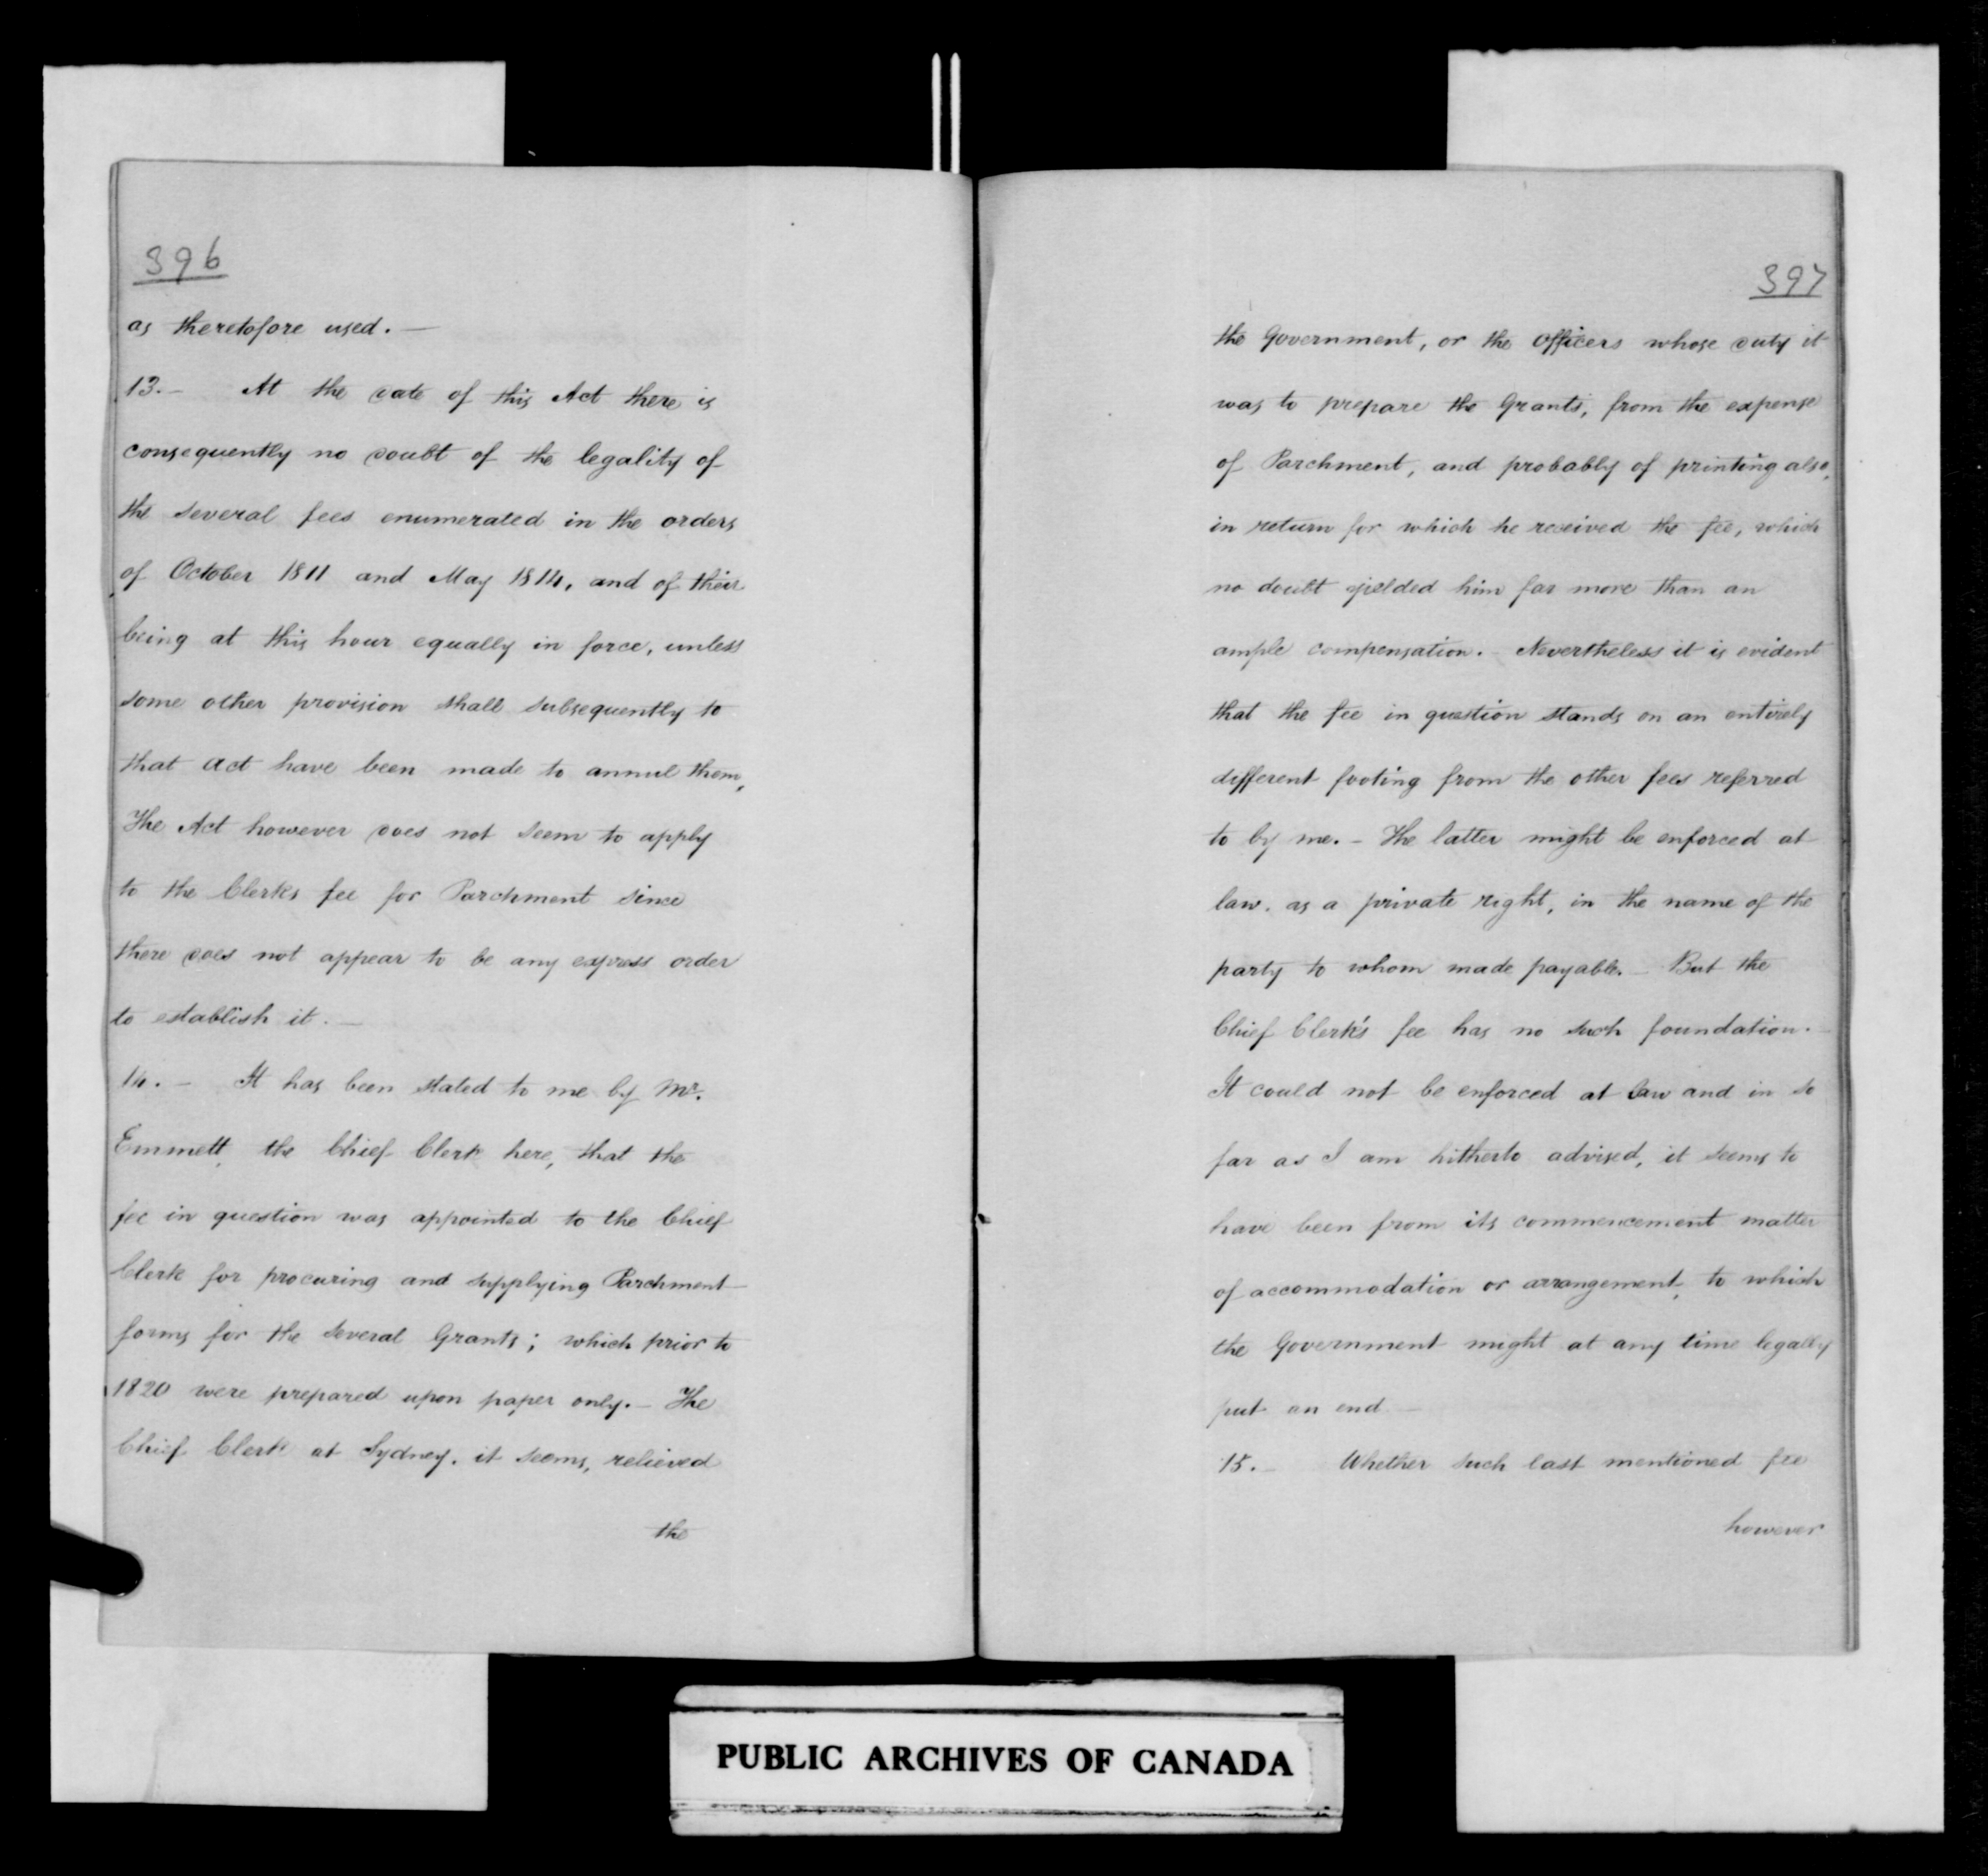 396
as theretofore used. —
13. - At the date of this Act there is
consequently no doubt of the legality of
the several fees enumerated in the orders
of October 1811 and May 1814, and of their
being at this hour equally in force, unless
some other provision shall subsequently to
that Act have been made to annul them,
The Act however does not seem to apply
to the Clerks fee for Parchment since
there does not appear to be any express order
to establish it. —
14. - It has been stated to me by Mr.
Emmett, the Chief Clerk here, that the
fee in question was appointed to the Chief
Clerk for procuring and supplying Parchment
forms for the several Grants; which prior to
1820 were prepared upon paper only. - The
Chief Clerk at Sydney, it seems, relieved
the
397
the Government, or the officers whose duty it
was to prepare the Grants, from the expense
of Parchment, and probably of printing also,
in return for which he received the fee, which
no doubt yielded him far more than an
ample compensation. - Nevertheless it is evident
that the fee in question stands on an entirely
different footing from the other fees referred
to by me. - The latter might be enforced at
law, as a private right, in the name of the
party to whom made payable. - But the
Chief Clerk's fee has no such foundation.
It could not be enforced at law and in so
far as I am hitherto advised, it seems to
have been from its commencement matter
of accommodation or arrangement, to which
the Government might at any time legally
put an end —
15. - Whether such last mentioned fee
however
PUBLIC ARCHIVES OF CANADA